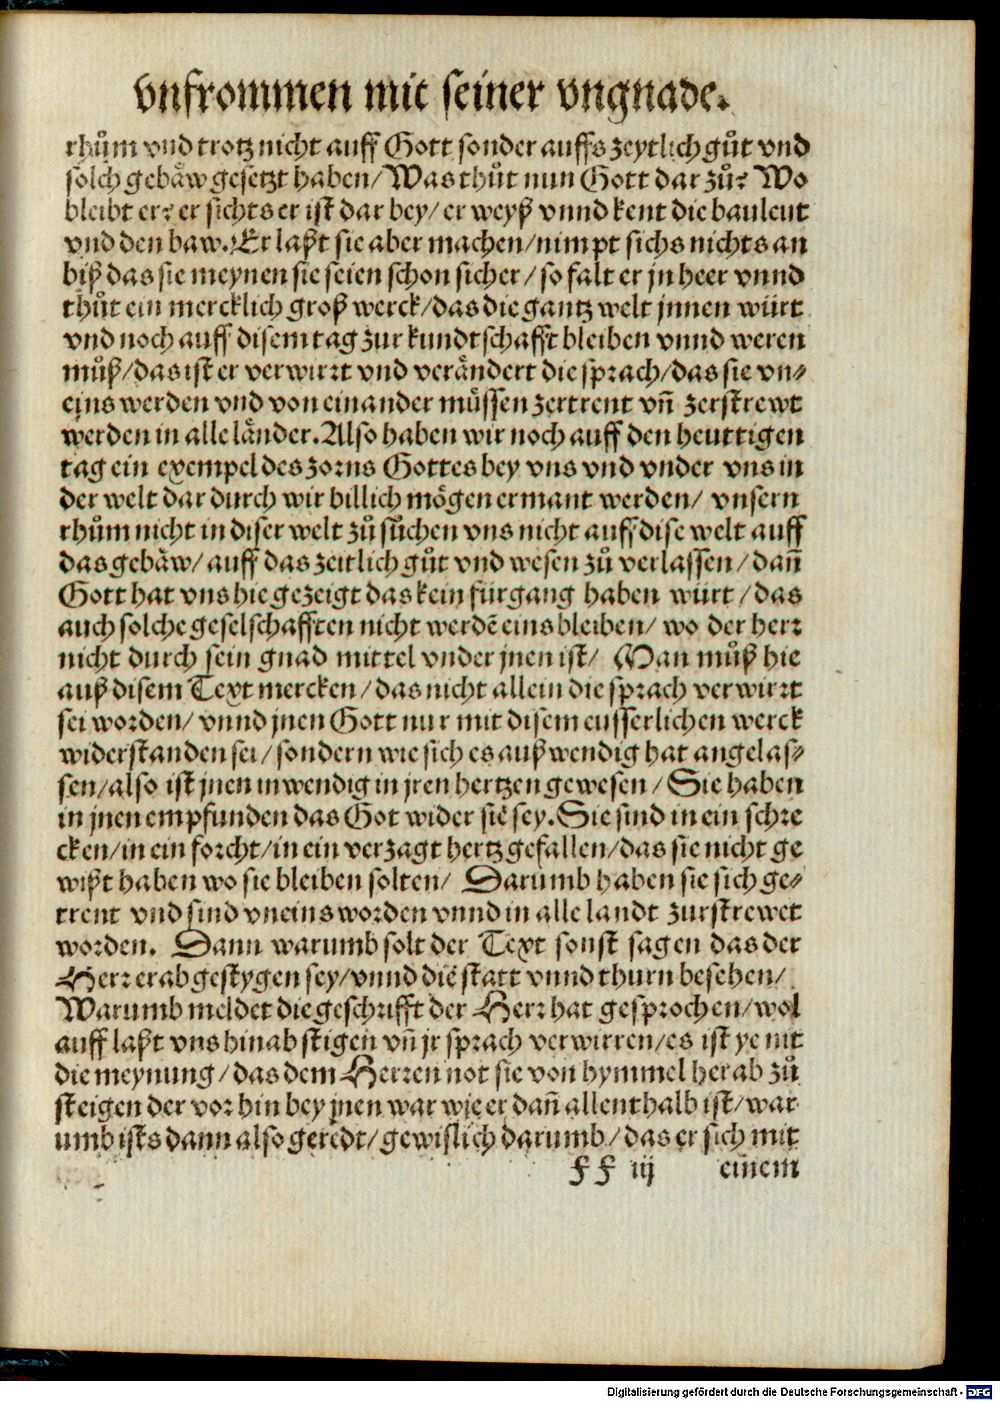 vnfrommen mit seiner vngnade.
rhům vnd trotz nicht auff Gott sonder auffs zeytlich gůt vnd
solch gebäw gesetzt haben/ Was thůt nun Gott dar zů? Wo
bleibt er? er sichts er ist dar bey/ er weyß vnnd kent die bauleut
vnd den baw. Er laßt sie aber machen/ nimpt sichs nichts an
biß das sie meynen sie seien schon sicher/ so falt er jn heer vnnd
thůt ein mercklich groß werck/ das die gantz welt jnnen würt
vnd noch auff disem tag zur kundtschafft bleiben vnnd weren
můß/ das ist er verwirrt vnd verändert die sprach/ das sie vn⸗
ejns werden vnd von einander müssen zertrent vñ zerstrewt
werden in alle länder. Also haben wir noch auff den heuttigen
tag ein exempel des zorns Gottes bey vns vnd vnder vns in
der welt dar durch wir billich mögen ermant werden/ vnsern
rhům nicht in diser welt zů sůchen vns nicht auff dise welt auff
das gebäw/ auff das zeitlich gůt vnd wesen zů verlassen/ dañ
Gott hat vns hie gezeigt das kein fürgang haben würt/ das
auch solche geselschafften nicht werdē eins bleiben/ wo der herr
nicht durch sein gnad mittel vnder jnen ist/ Man můß hie
auß disem Text mercken/ das nicht allein die sprach verwirrt
sei worden/ vnnd jnen Gott nur mit disem eusserlichen werck
widerstanden sei/ sondern wie sich es außwendig hat angelas⸗
sen/ also ist jnen inwendig in jren hertzen gewesen/ Sie haben
in jnen empfunden das Got wider sie sey. Sie sind in ein schre
cken/ in ein forcht/ in ein verzagt hertz gefallen/ das sie nicht ge
wißt haben wo sie bleiben solten/ Darumb haben sie sich ge⸗
trent vnd sind vneins worden vnnd in alle landt zurstrewet
worden. Dann warumb solt der Text sonst sagen das der
Herr erab gestygen sey/ vnnd die statt vnnd thurn besehen/
Warumb meldet die geschrifft der Herr hat gesprochen/ wol
auff laßt vns hinab stigen vñ jr sprach verwirren/ es ist ye nit
die meynung/ das dem Herren not sie von hymmel herab zů
steigen der vor hin bey jnen war wje er dañ allenthalb ist/ war
umb ists dann also geredt/ gewislich darumb/ das er sich mit
ff iij einem
Digitalisierung gefördert durch die Deutsche Forschungsgemeinschaft - DFG